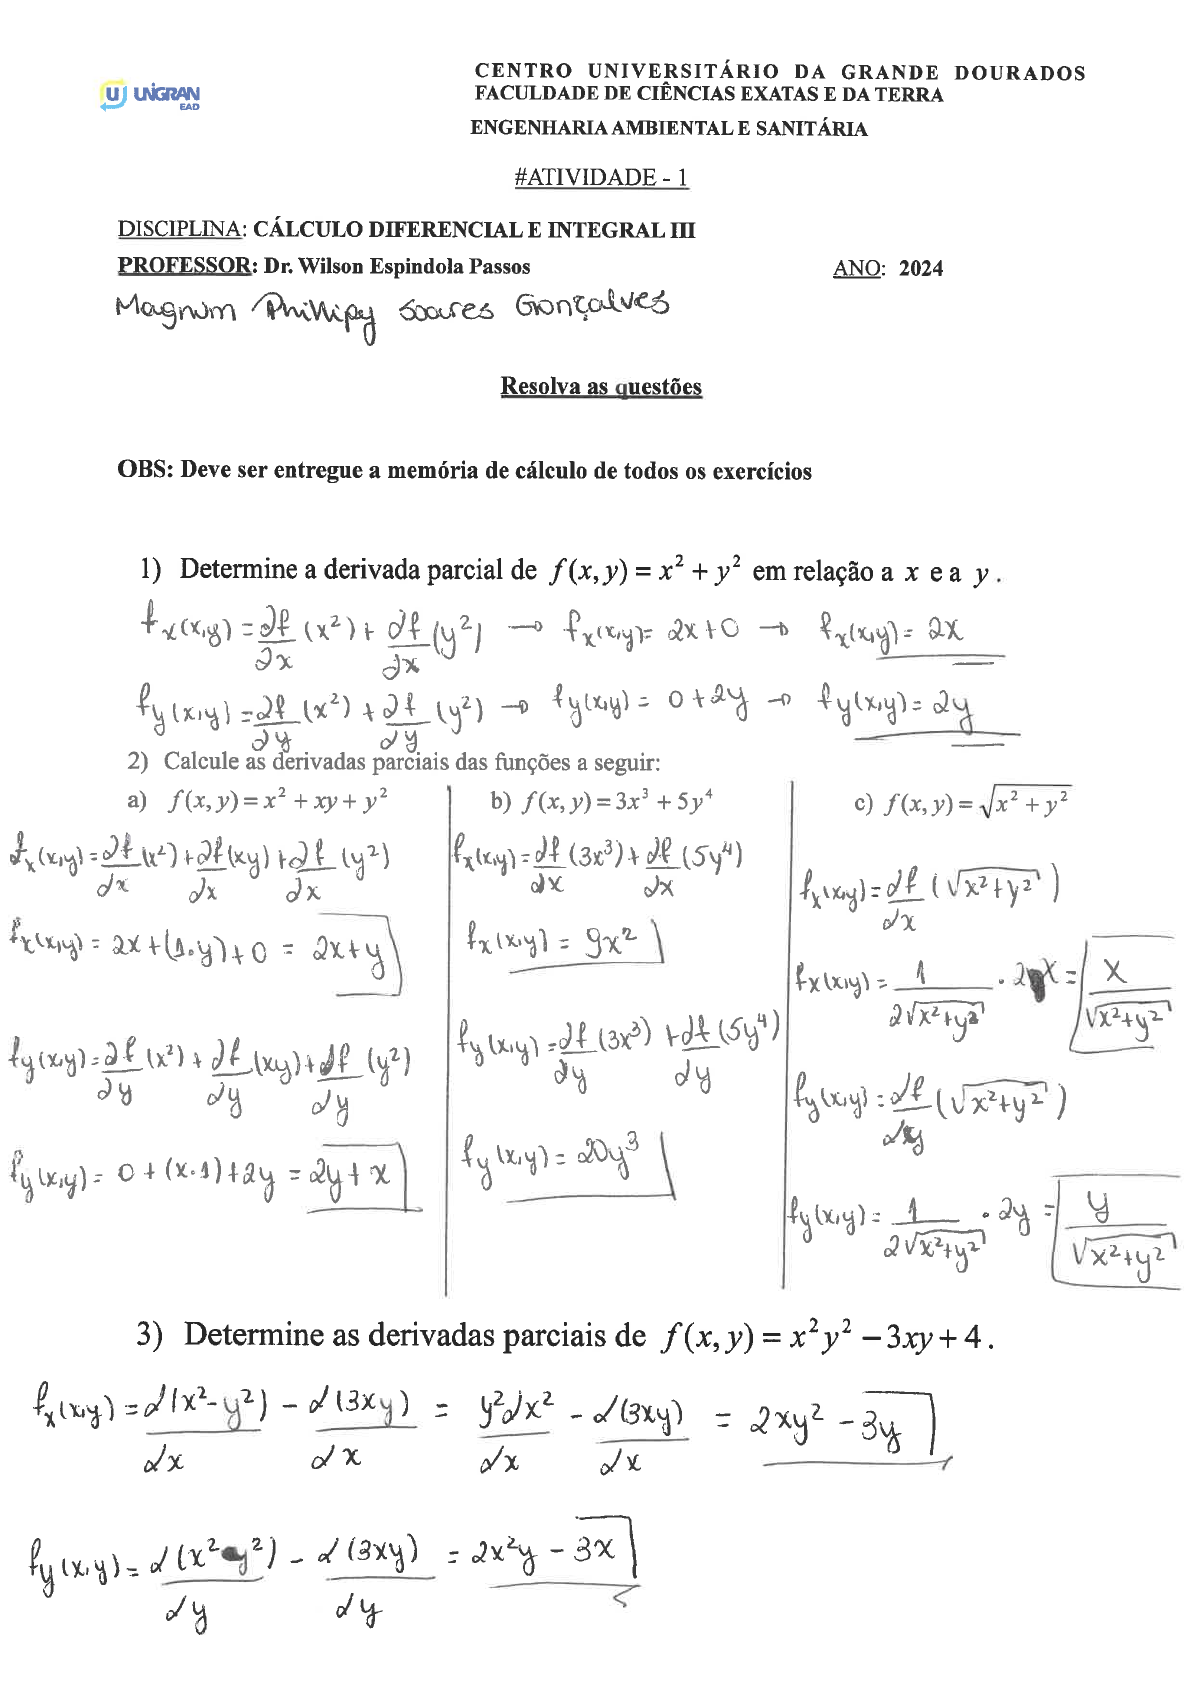 CENTRO UNIVERSITÁRIO DA GRANDE DOURADOS
FACULDADE DE CIÊNCIAS EXATAS E DA TERRA
U UNIGRAN
EAD
ENGENHARIA AMBIENTAL E SANITÁRIA
#ATIVIDADE - 1
DISCIPLINA: CÁLCULO DIFERENCIAL E INTEGRAL III
PROFESSOR: Dr. Wilson Espindola Passos ANO: 2024
Magnum Phillipy Soares Gonçalves
Resolva as questões
OBS: Deve ser entregue a memória de cálculo de todos os exercícios
1) Determine a derivada parcial de f(x, y) = x² + y² em relação a x e a y .
fx(x,y) = ∂f/∂x (x²) + ∂f/∂x (y²) → fx(x,y) = 2x+0 → fx(x,y) = 2x
fy(x,y) = ∂f/∂y (x²) + ∂f/∂y (y²) → fy(x,y) = 0+2y → fy(x,y) = 2y
2) Calcule as derivadas parciais das funções a seguir:
a) f(x, y) = x² + xy + y²
fx(x,y) = ∂f/∂x (x²) + ∂f/∂x (xy) + ∂f/∂x (y²)
fx(x,y) = 2x + (1.y) + 0 = 2x+y
fy(x,y) = ∂f/∂y (x²) + ∂f/∂y (xy) + ∂f/∂y (y²)
fy(x,y) = 0 + (x.1) + 2y = 2y + x
b) f(x, y) = 3x³ + 5y⁴
fx(x,y) = ∂f/∂x (3x³) + ∂f/∂x (5y⁴)
fx(x,y) = 9x²
fy(x,y) = ∂f/∂y (3x³) + ∂f/∂y (5y⁴)
fy(x,y) = 20y³
c) f(x, y) = √(x² + y²)
fx(x,y) = ∂f/∂x (√(x²+y²))
fx(x,y) = 1/(2√(x²+y²)) . 2x = x/√(x²+y²)
fy(x,y) = ∂f/∂y (√(x²+y²))
fy(x,y) = 1/(2√(x²+y²)) . 2y = y/√(x²+y²)
3) Determine as derivadas parciais de f(x, y) = x²y² − 3xy + 4 .
fx(x,y) = ∂(x²-y²)/∂x − ∂(3xy)/∂x = y²∂x²/∂x − ∂(3xy)/∂x = 2xy² − 3y
fy(x,y) = ∂(x² y²)/∂y − ∂(3xy)/∂y = 2x²y − 3x